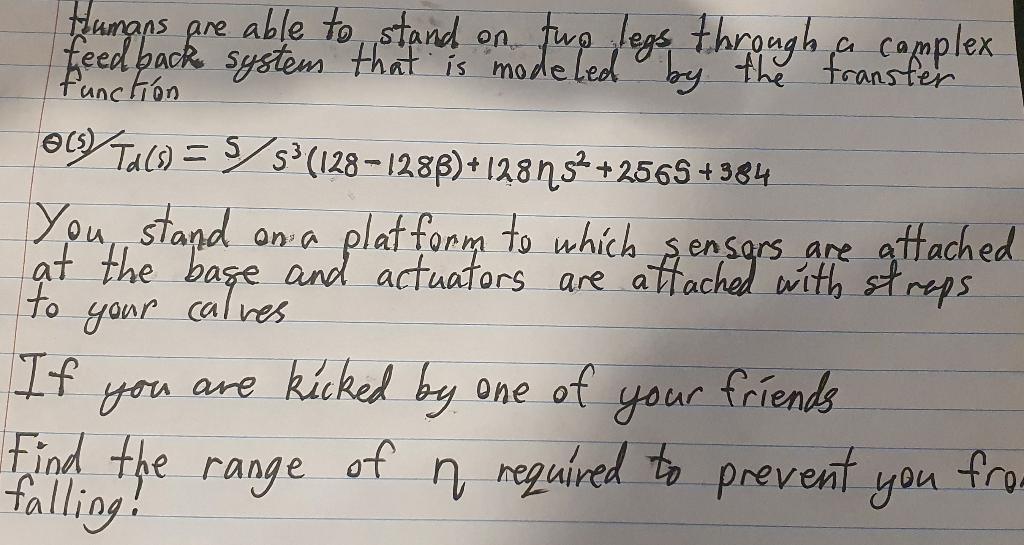 Humans are able to stand on two legs through a complex
feedback system that is modeled by the transfer
function
Θ(s)/Td(s) = S/S³(128-128β)+128ηs²+256S+384
You stand on a platform to which sensors are attached
at the base and actuators are attached with straps
to your calves
If you are kicked by one of your friends
Find the range of η required to prevent you fro
falling!